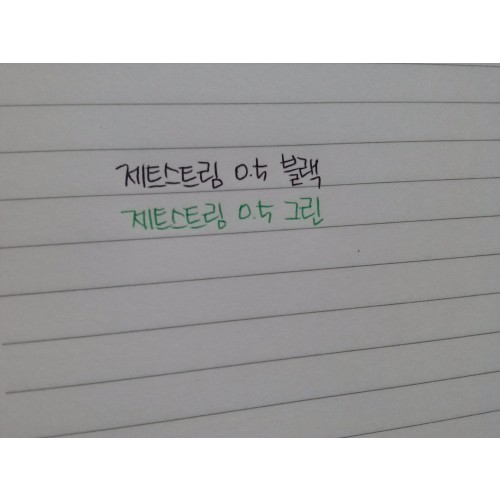 제트스트림 0.5 블랙
제트스트림 0.5 그린